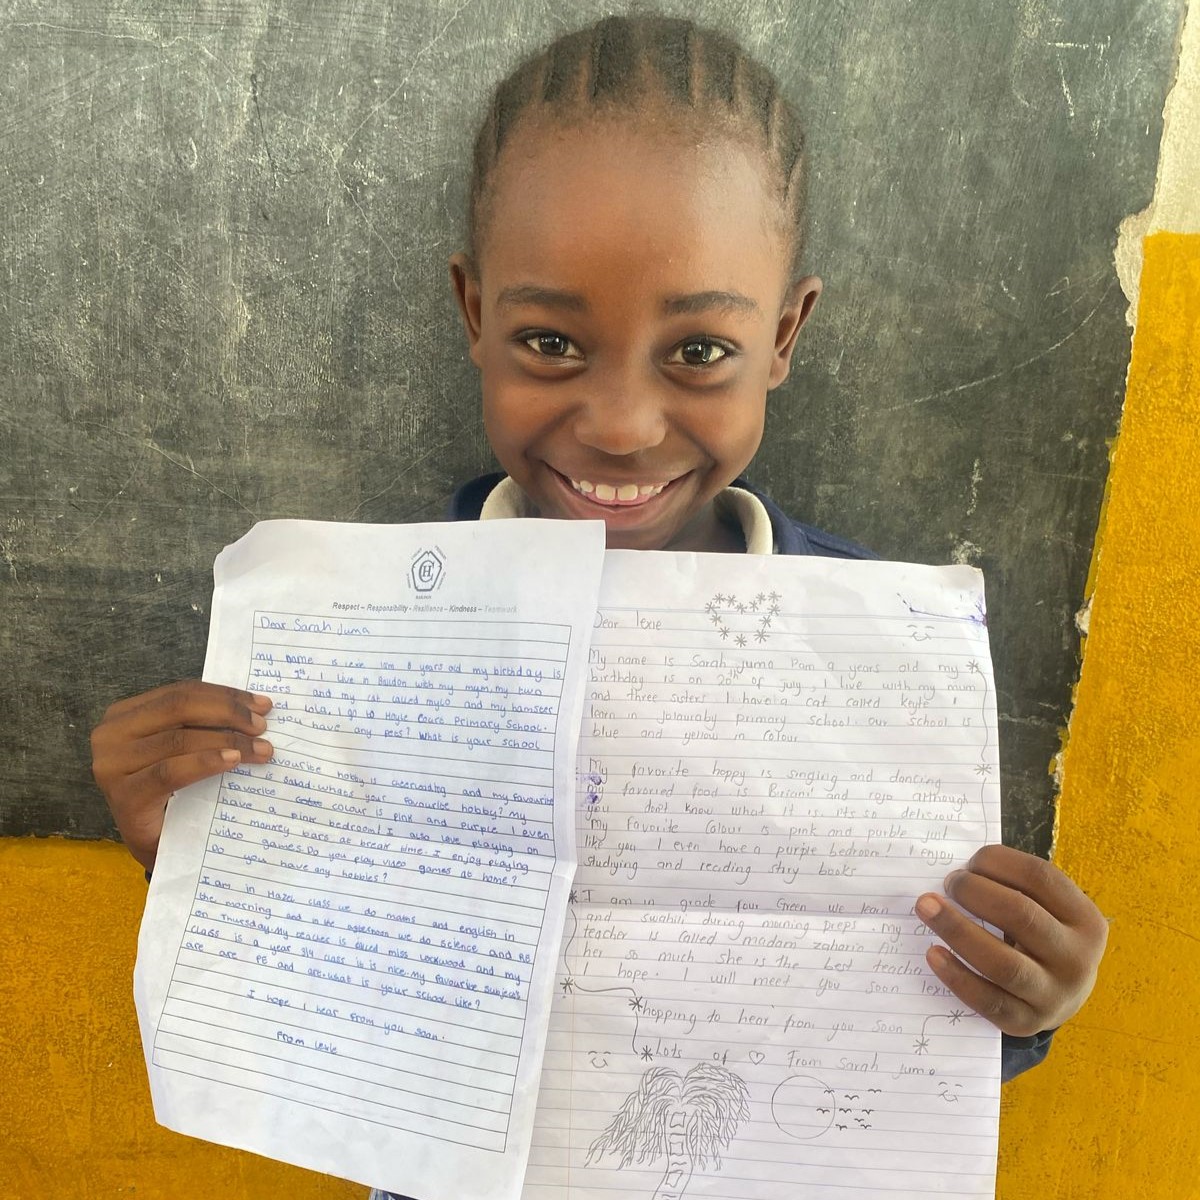 Respect - Responsibility - Resilience - Kindness - Teamwork
Dear Sarah Juma
my name is Lexie ism 8 years old my birthday is
July 9th, I live in Basildon with my mum, my two
sisters and my cat called mylo and my hamster
ed lola, I go to Hoyle Court Primary School.
you have any pets? What is your school
avourite hobby is cheerleading and my favourite
ood is salad. whats your favourite hobby? my
favorite colour is pink and purple I even
have a pink bedroom! I also love playing on
the monkey bars at break time. I enjoy playing
video games. Do you play video games at home?
Do you have any hobbies?
I am in Hazel class we do maths and english in
the morning and in the afternoon we do science and PE
on Thursday. My teacher is called miss Lockwood and my
class is a year 3/4 class it is nice. My favourite subjects
are PE and art. what is your school like?
I hope I hear from you soon.
From Lexie
Dear lexie
My name is Sarah Juma Pam 9 years old my
birthday is on 20th of july, I live with my mum
and three sisters I have a cat called keyte I
learn in Jolaurabу primary school. our school is
blue and yellow in Colour
My favorite hoppy is singing and dancing
my favored food is Beriani and rojo although
you don't know what it is. Its so delicious
My favorite Colour is pink and purble just
like you I even have a purple bedroom! I enjoy
studying and reading story books
I am in grade four Green we learn
and swahili during morning preps. my cl
teacher is called madam zaharia Ali
her so much she is the best teacher
I hope. I will meet you soon lexi
hopping to hear from you soon
Lots of ♡ From Sarah juma